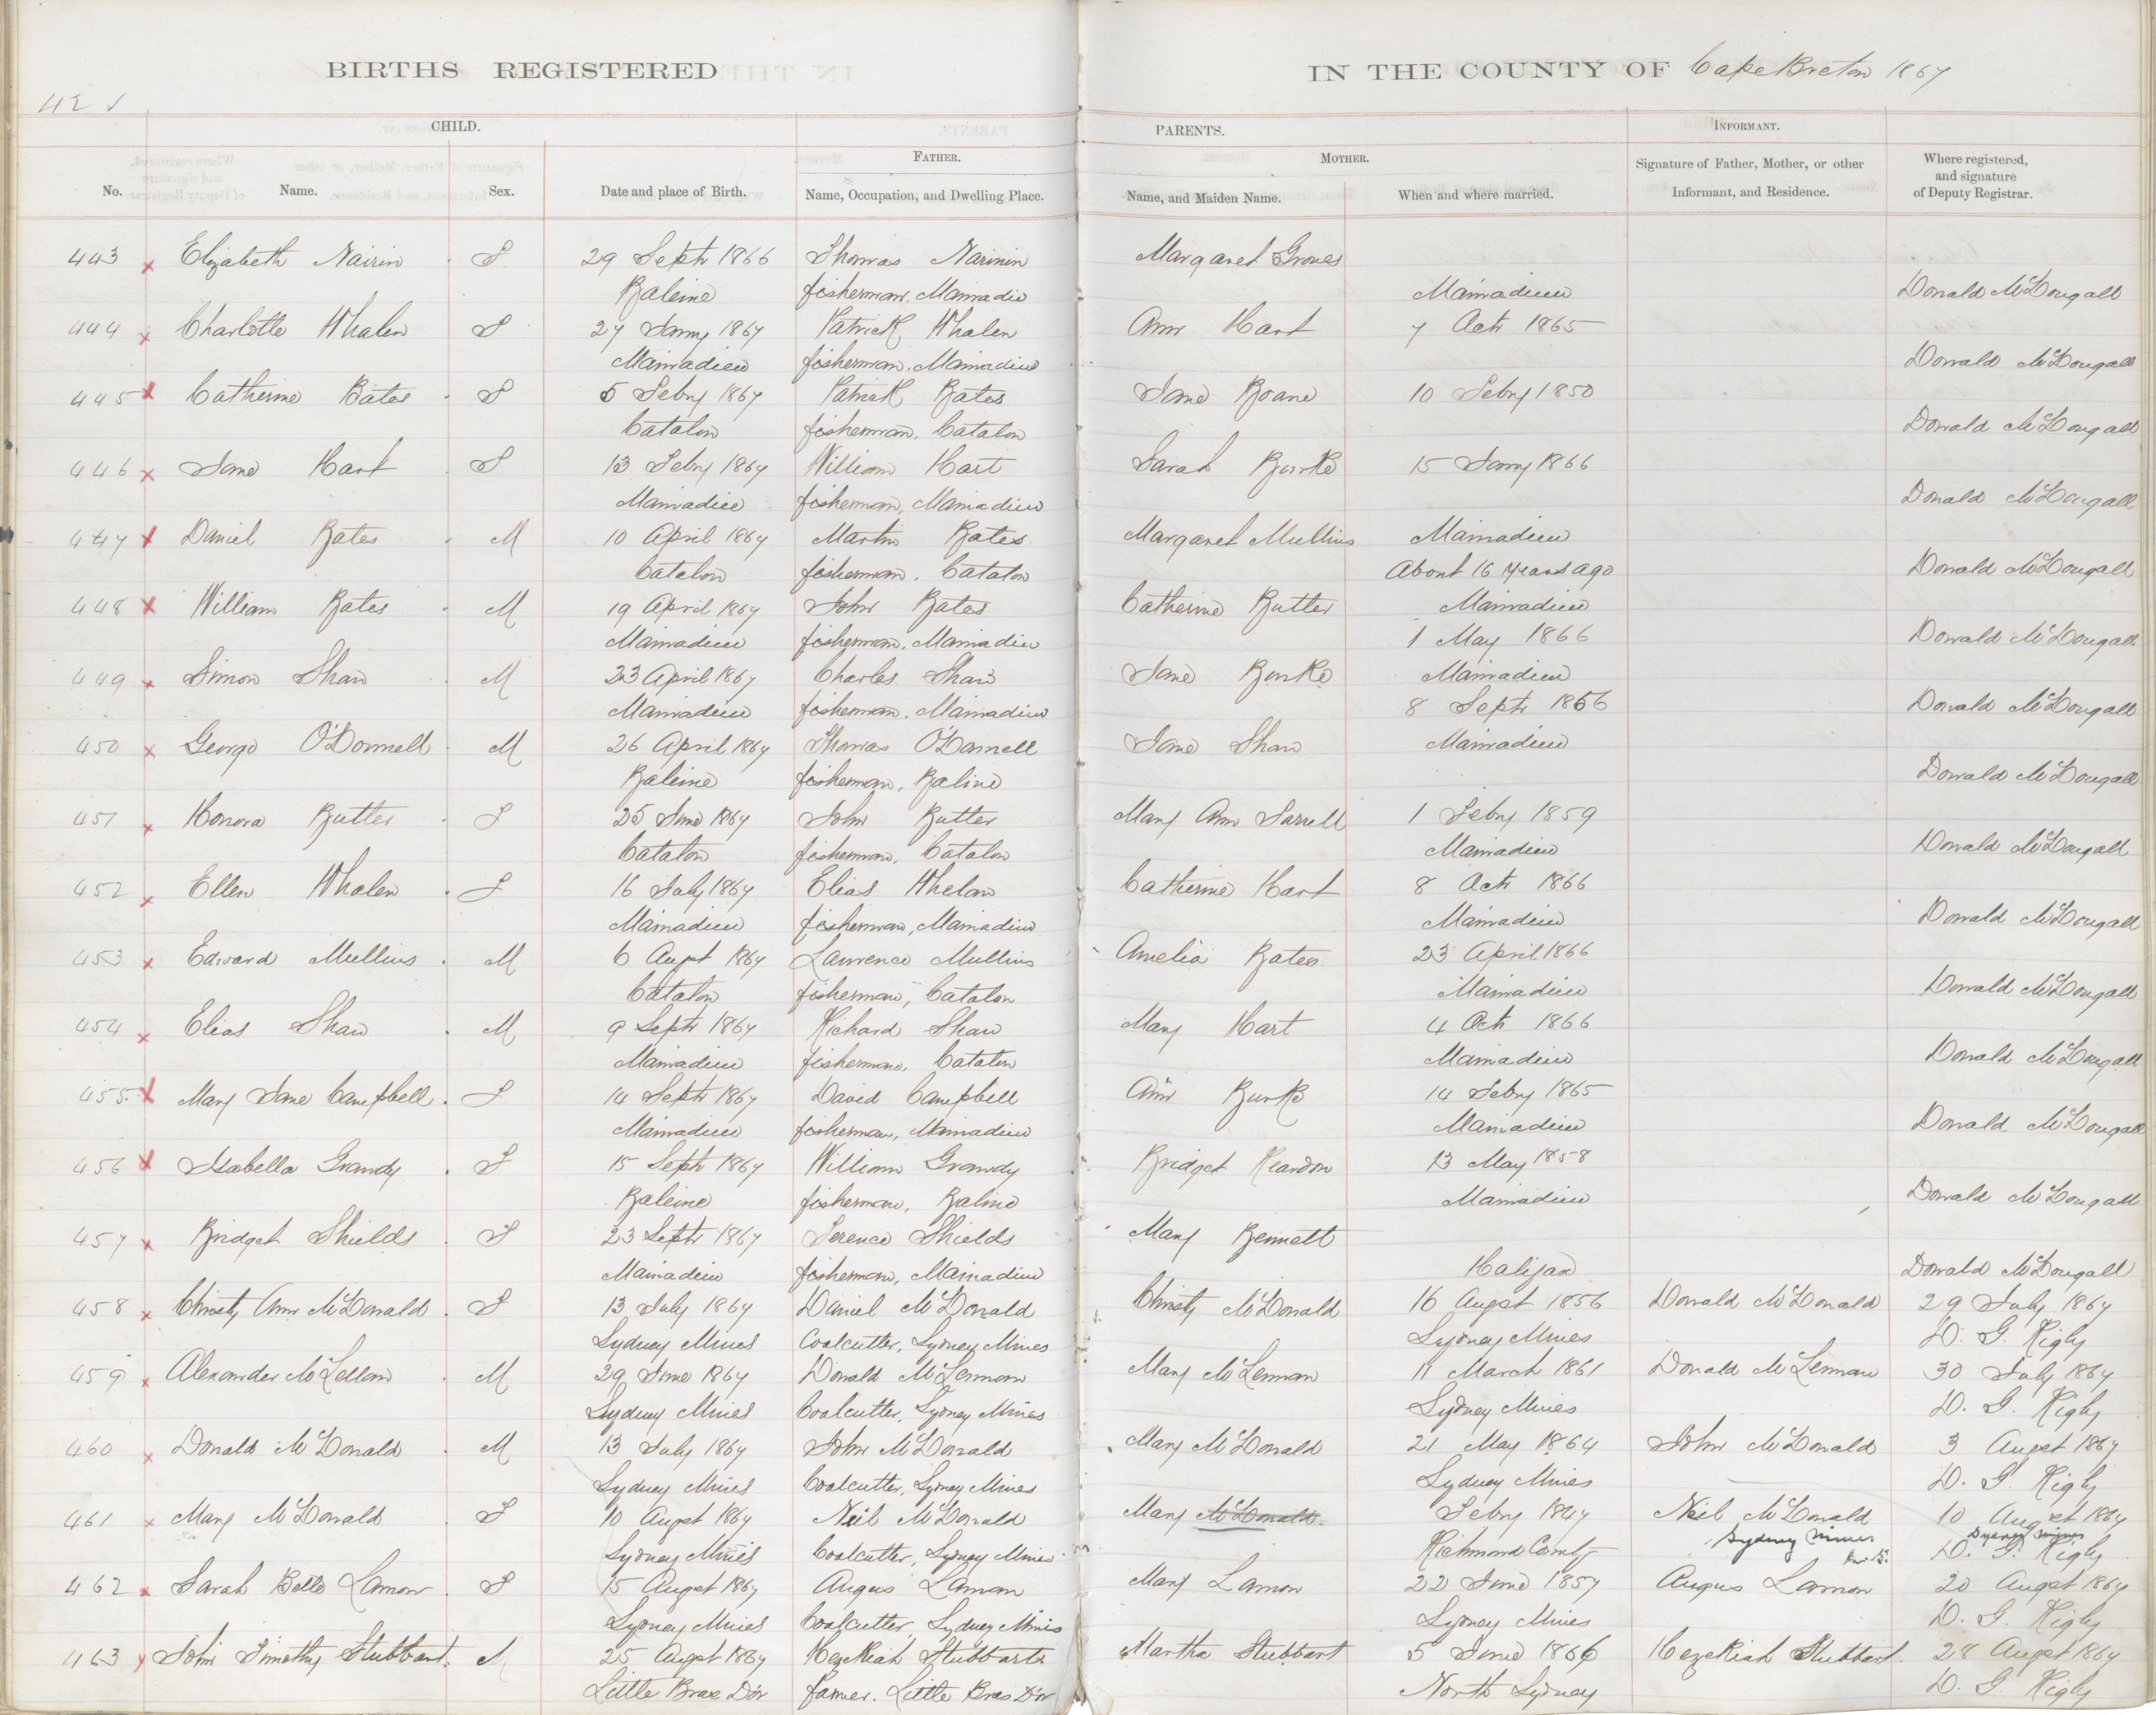 BIRTHS REGISTERED IN THE COUNTY OF Cape Breton 1867
42 √
CHILD. PARENTS. INFORMANT.
FATHER. MOTHER.
No. Name. Sex. Date and place of Birth. Name, Occupation, and Dwelling Place. Name, and Maiden Name. When and where married. Signature of Father, Mother, or other Informant, and Residence. Where registered, and signature of Deputy Registrar.
443 x Elizabeth Nairin F 29 Sept 1866 Thomas Narinin Margaret Groves
Baleine fisherman, Mainadio Mainadieu Donald McDougall
444 x Charlotte Whalen F 27 Jany 1867 Patrick Whalen Ann Hart 7 Oct 1865
Mainadieu fisherman, Mainadieu Donald McDougall
445 x Catherine Bates F 5 Feby 1867 Patrick Bates Jane Boane 10 Feby 1850
Catalon fisherman, Catalon Donald McDougall
446 x Jane Hart F 13 Feby 1867 William Hart Sarah Burke 15 Jany 1866
Mainadieu fisherman, Mainadieu Donald McDougall
447 x Daniel Bates M 10 April 1867 Martin Bates Margaret Mullins Mainadieu
Catalon fisherman, Catalon About 16 years ago Donald McDougall
448 x William Bates M 19 April 1867 John Bates Catherine Butler Mainadieu
Mainadieu fisherman, Mainadieu 1 May 1866 Donald McDougall
449 x Simon Shaw M 23 April 1867 Charles Shaw Jane Burke Mainadieu
Mainadieu fisherman, Mainadieu 8 Sept 1856 Donald McDougall
450 x George O'Donnell M 26 April 1867 Thomas O'Donnell Jane Shaw Mainadieu
Baleine fisherman, Baline Donald McDougall
451 x Honora Butler F 25 June 1867 John Butler Mary Ann Farrell 1 Feby 1859
Catalon fisherman, Catalon Mainadieu Donald McDougall
452 x Ellen Whalen F 16 July 1867 Elias Whelan Catherine Hart 8 Oct 1866
Mainadieu fisherman, Mainadieu Mainadieu Donald McDougall
453 x Edward Mullins M 6 Augt 1867 Lawrence Mullins Amelia Bates 23 April 1866
Catalon fisherman, Catalon Mainadieu Donald McDougall
454 x Elias Shaw M 9 Sept 1867 Richard Shaw Mary Hart 4 Oct 1866
Mainadieu fisherman, Catalon Mainadieu Donald McDougall
455 x Mary Jane Campbell F 14 Sept 1867 David Campbell Ann Burke 14 Feby 1865
Mainadieu fisherman, Mainadieu Mainadieu Donald McDougall
456 x Isabella Grandy F 15 Sept 1867 William Grandy Bridget Reardon 13 May 1858
Baleine fisherman, Baline Mainadieu Donald McDougall
457 x Bridget Shields F 23 Sept 1867 Terence Shields Mary Bennett
Mainadieu fisherman, Mainadieu Halifax Donald McDougall
458 x Christy Ann McDonald F 13 July 1867 Daniel McDonald Christy McDonald 16 Augst 1856 Donald McDonald 29 July 1867
Sydney Mines Coalcutter, Sydney Mines Sydney Mines D. G. Rigby
459 x Alexander McLellan M 29 June 1867 Donald McLennan Mary McLennan 11 March 1861 Donald McLennan 30 July 1867
Sydney Mines Coalcutter, Sydney Mines Sydney Mines D. G. Rigby
460 x Donald McDonald M 13 July 1867 John McDonald Mary McDonald 21 May 1864 John McDonald 3 Augst 1867
Sydney Mines Coalcutter, Sydney Mines Sydney Mines D. G. Rigby
461 x Mary McDonald F 10 Augst 1867 Neil McDonald Mary McDonald Feby 1847 Neil McDonald 10 Augst 1867
Sydney Mines Coalcutter, Sydney Mines Richmond County Sydney Mines Sydney Mines D. G. Rigby
462 x Sarah Belle Lamon F 15 Augst 1867 Angus Laman Mary Lamon 22 June 1857 Angus Lamon 20 Augst 1867
Sydney Mines Coalcutter, Sydney Mines Sydney Mines D. G. Rigby
463 x John Timothy Stubbart M 25 Augst 1867 Hezekiah Stubbart Martha Stubbart 5 June 1866 Hezekiah Stubbart 28 Augst 1867
Little Bras D'or famer. Little Bras D'or North Sydney D. G. Rigby